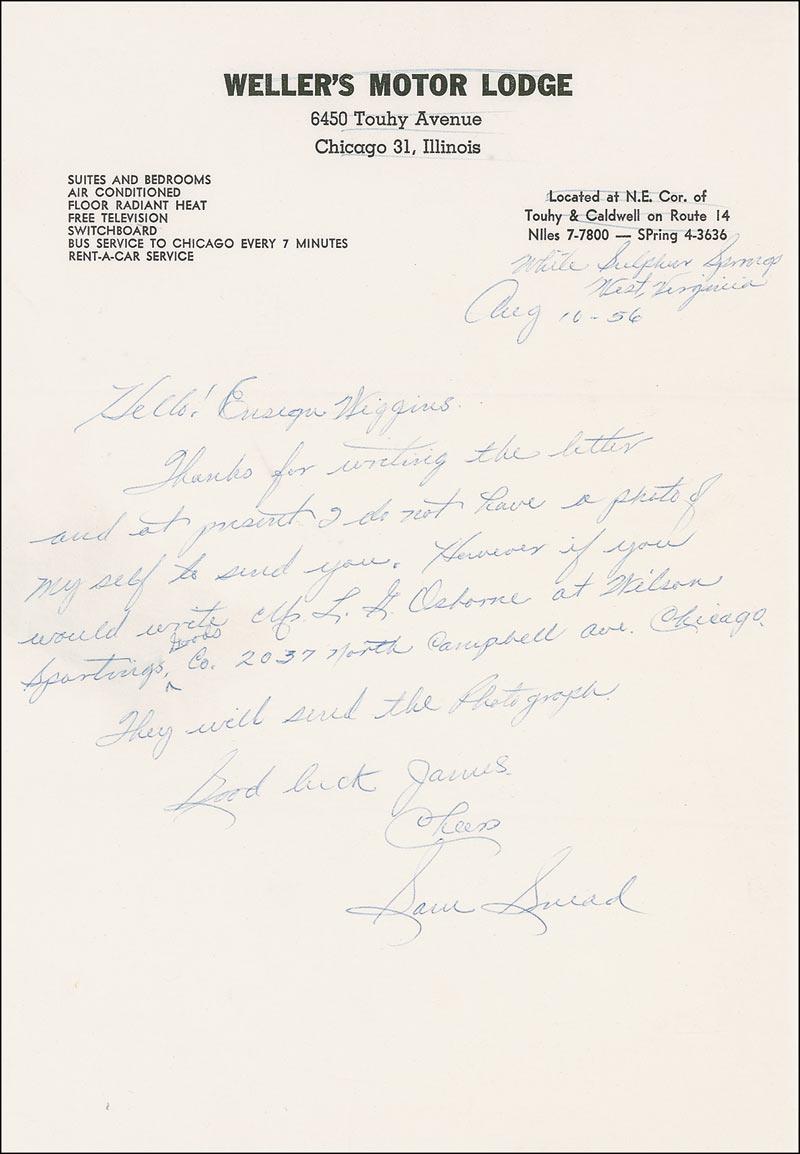 WELLER'S MOTOR LODGE
6450 Touhy Avenue
Chicago 31, Illinois
SUITES AND BEDROOMS
AIR CONDITIONED
FLOOR RADIANT HEAT
FREE TELEVISION
SWITCHBOARD
BUS SERVICE TO CHICAGO EVERY 7 MINUTES
RENT-A-CAR SERVICE
Located at N.E. Cor. of
Touhy & Caldwell on Route 14
NIles 7-7800 — SPring 4-3636
White Sulphur Springs
West, Virginia
Aug 10-56
Hello! Ensign Wiggins.
Thanks for writing the letter
and at present I do not have a photo of
my self to send you. However if you
would write Mr. L. G. Osborne at Wilson
Sportings, Goods Co. 2037 North Campbell ave. Chicago.
They will send the Photograph.
Good luck James.
Cheers
Sam Snead